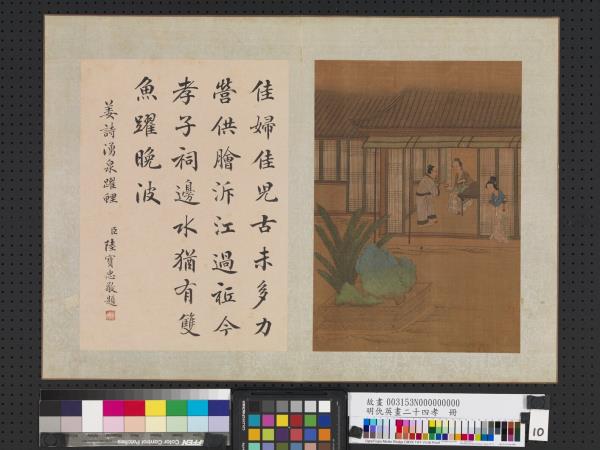 佳婦佳兒古未多力
營供膾泝江過祇今
孝子祠邊水猶有雙
魚躍晚波
姜詩湧泉躍鯉
臣陸寶忠敬題
故畫 003153N000000000
明仇英畫二十四孝 冊
10
TIFFEN Color Control Patches